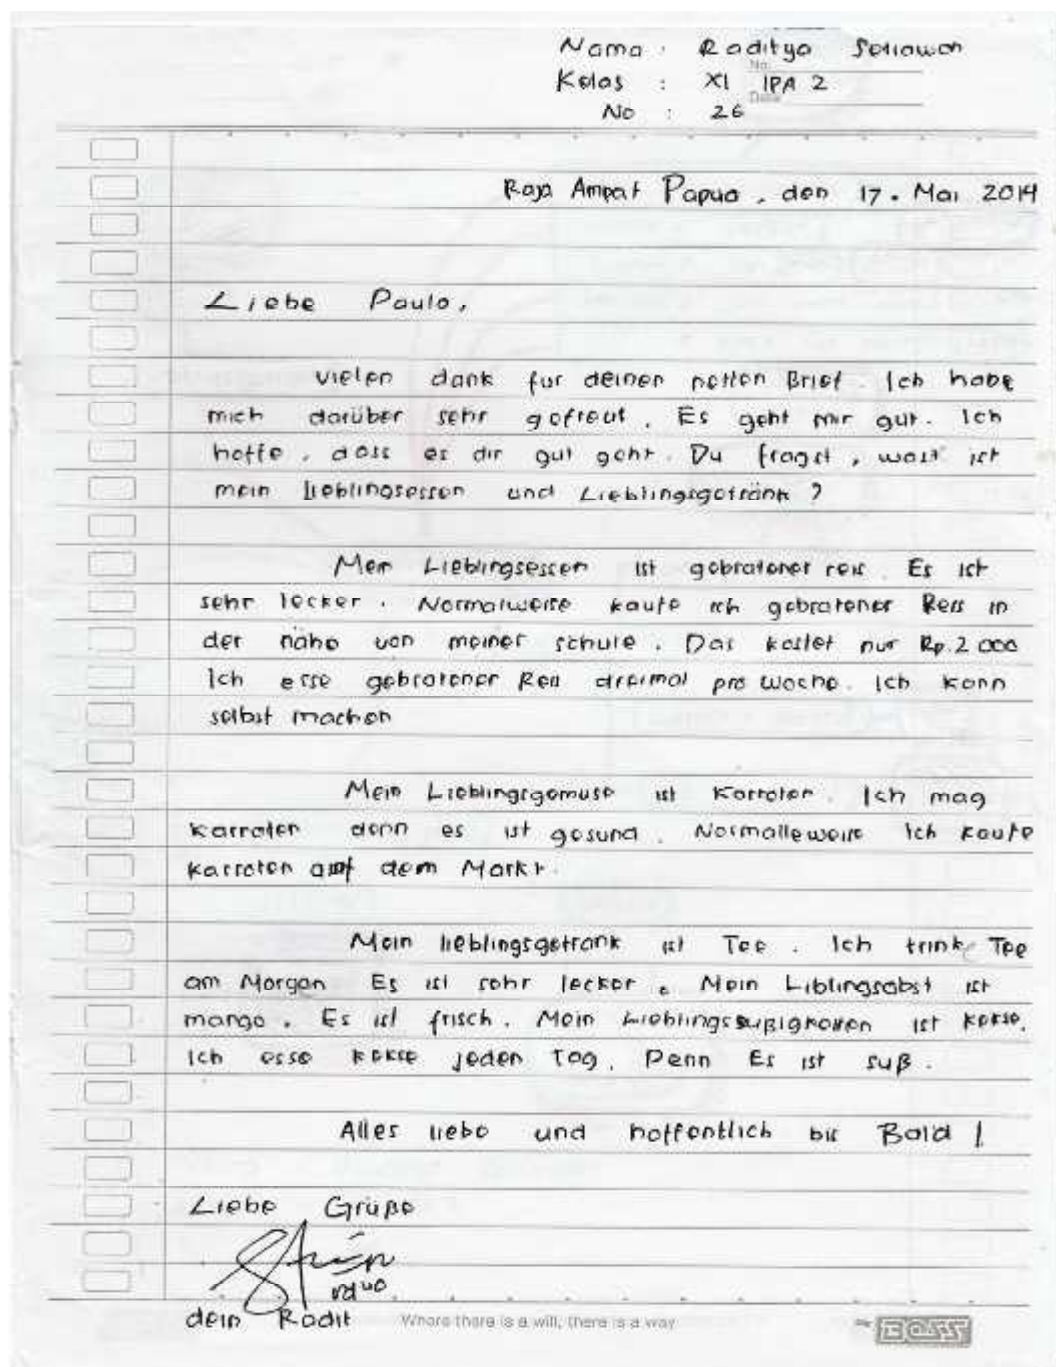 Nama : Raditya Setiawan
No.
Kelas : XI IPA 2
Date
No : 26
Raja Ampat Papua, den 17. Mai 2014
Liebe Paulo,
vielen dank fur deinen netten Brief. Ich habe
mich darüber sehr gefreut. Es geht mir gut. Ich
hoffe, dass es dir gut geht. Du fragst, wast ist
mein lieblingsessen und Lieblingsgetränk ?
Mein Lieblingsessen ist gebratener reis. Es ist
sehr lecker. Normalweise kaufe ich gebratener Reis in
der nähe von meiner schule. Das kostet nur Rp. 2 000
Ich esse gebratener Reis dreimal pro woche. Ich kann
selbst machen
Mein Lieblingsgemuse ist Karroten. Ich mag
karroten denn es ist gesund. Normalleweise Ich kaufe
karroten auf dem Markt.
Mein lieblingsgetrank ist Tee. Ich trink Tee
am Morgan Es ist sehr lecker. Mein Liblingsobst ist
mango. Es ist frisch. Mein Lieblingssußigkeiten ist kekse.
Ich esse kekse jeden Tag. Denn Es ist suß.
Alles liebe und hoffentlich bis Bald !
Liebe Grüße
dein Radit
Where there is a will, there is a way
BOSS